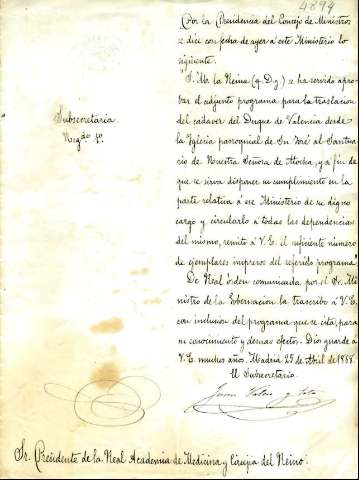 4894
Por la Presidencia del Consejo de Ministros
se dice con fecha de ayer á este Ministerio lo
siguiente.
"S. M. la Reina (q. D. g.) se ha servido apro-
bar el adjunto programa para la traslacion
del cadaver del Duque de Valencia desde
la Iglesia parroquial de Sn. José al Santua-
rio de Nuestra Señora de Atocha, y á fin de
que se sirva disponer su cumplimiento en la
parte relativa á ese Ministerio de su digno
cargo y circularlo á todas las dependencias
del mismo, remito á V. E. el suficiente número
de ejemplares impresos del referido programa"
De Real órden comunicada por el Sr. Mi-
nistro de la Gobernacion la trascribo á V. E.
con inclusion del programa que se cita, para
su conocimiento y demas efectos. Dios guarde á
V. E. muchos años. Madrid 25 de Abril de 1888.
El Subsecretario
Subsecretaría
Negdo. 1º.
Sr. Presidente de la Real Academia de Medicina y Cirujia del Reino.